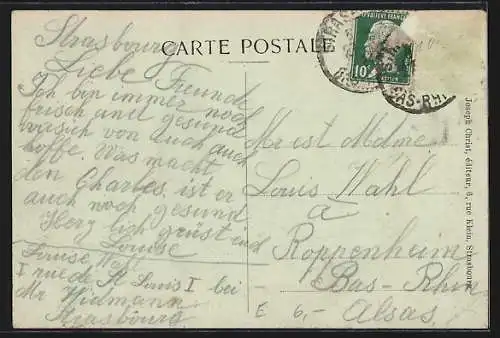 Strasbourg
CARTE POSTALE
Liebe Freunde
Ich bin immer noch
frisch und gesund
was ich von Euch auch
hoffe. Was macht
den Charles, ist er
auch noch gesund
Herzlich grüst eud
Louise
Louise Wahl
1 rue de St Louis I bei
Mr Widmann
Strasbourg
Mr et Mdme
Louis Wahl
à
Roppenheim
Bas-Rhin
Alsas
E 6,-
POSTES FRANÇAISES
10c
STRASB
BAS-RHIN
Joseph Christ, éditeur, 6, rue Klein, Strasbourg